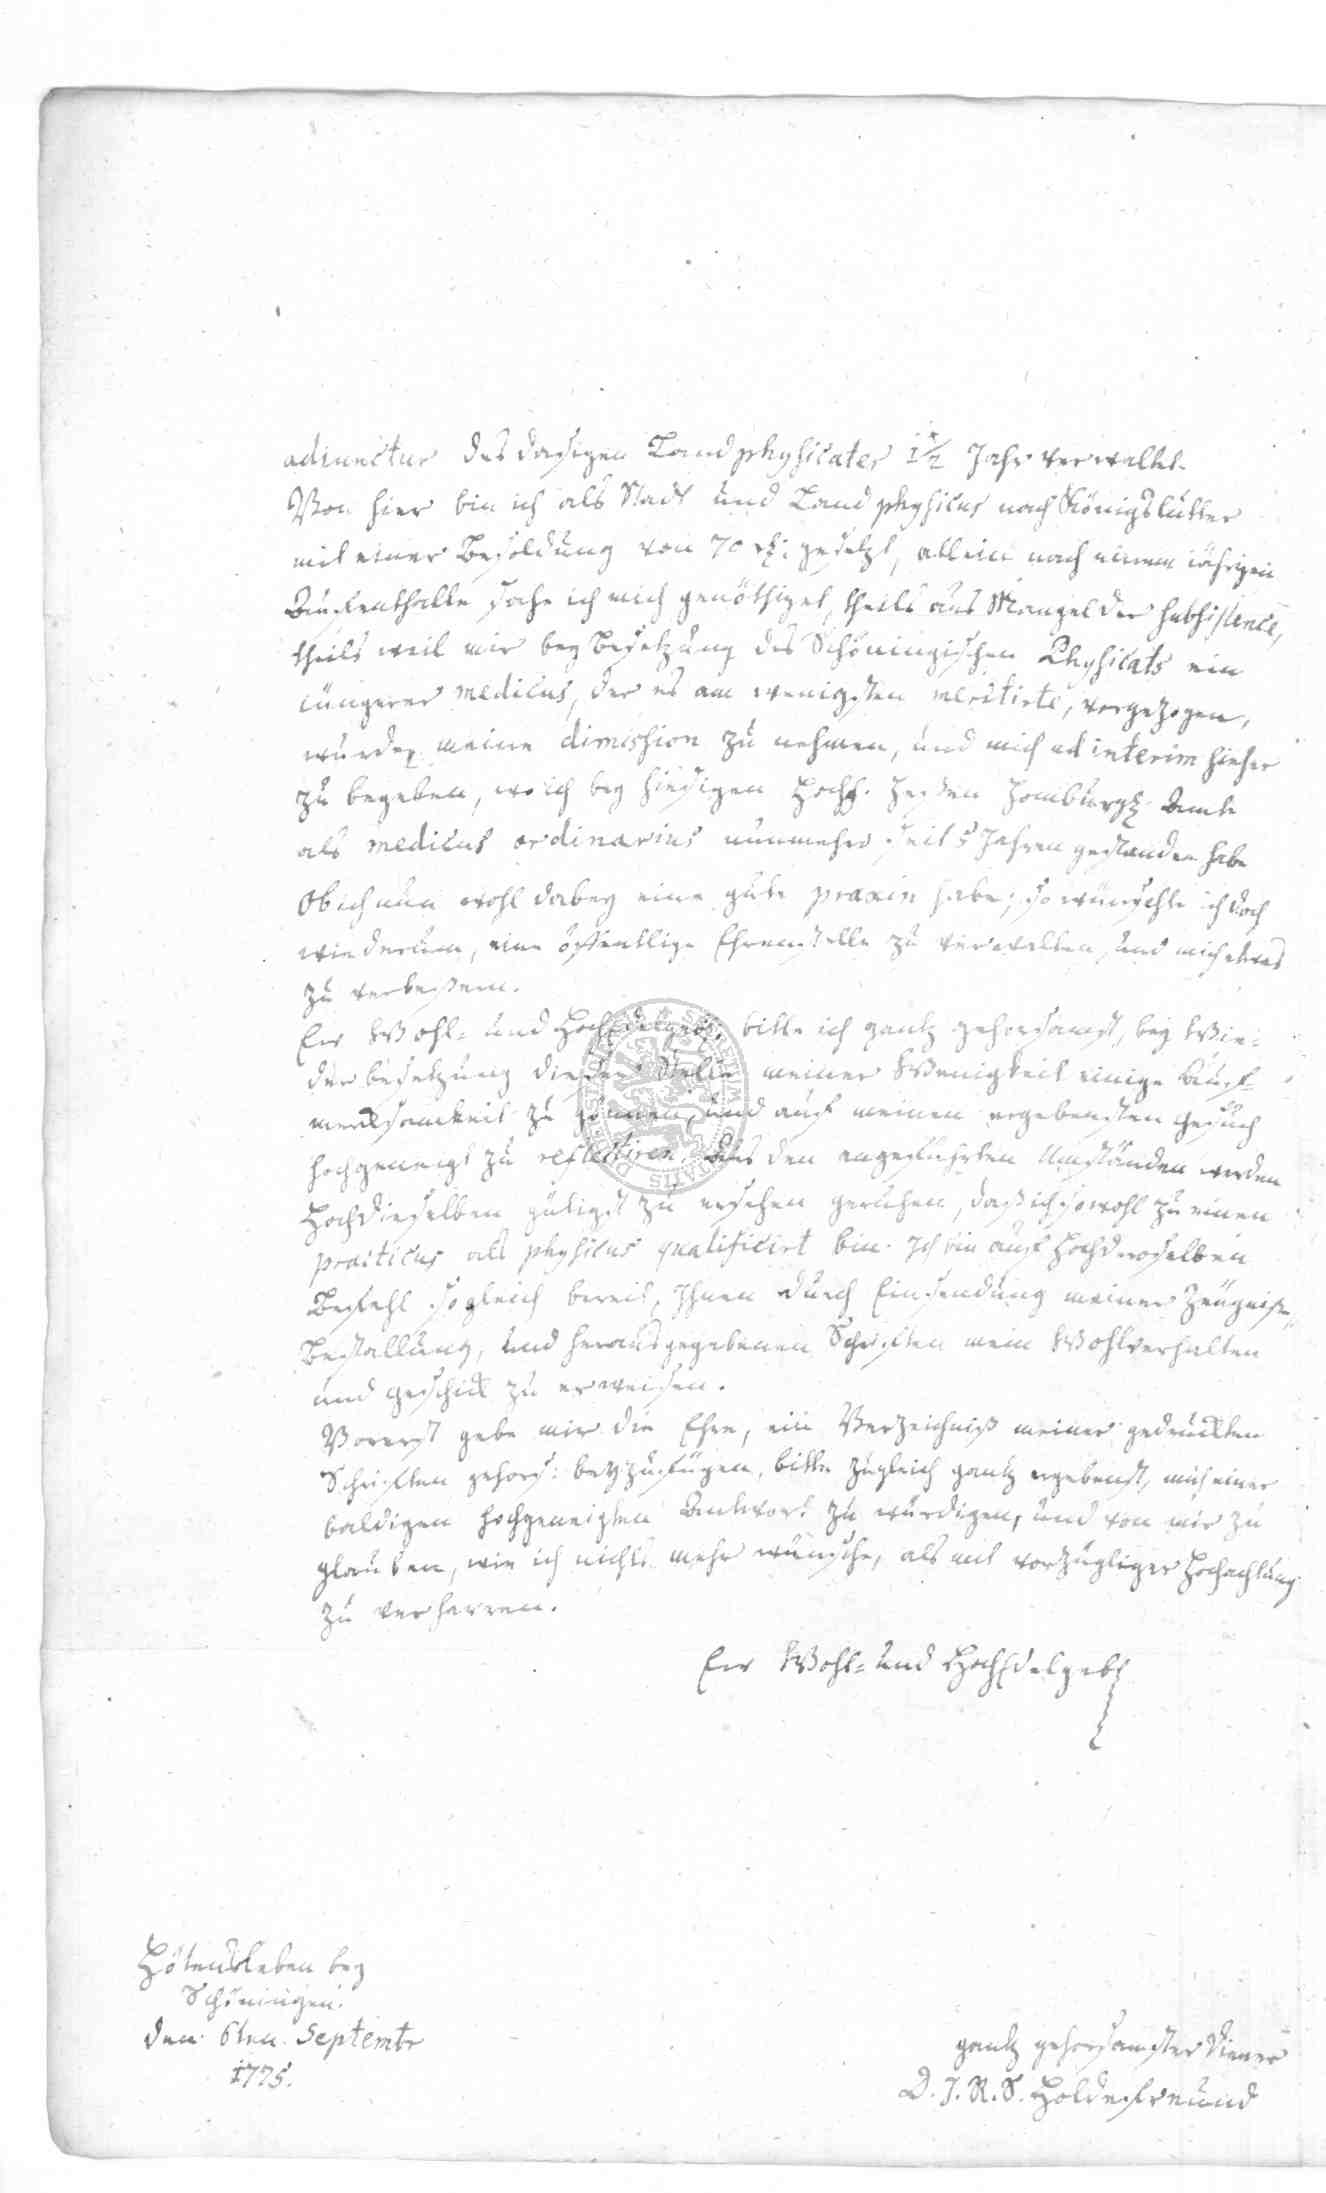 adiunctur des dasigen Landphysicates 1 1/2 Jahr verwaltet.
Von hier bin ich als Stadt und Land physicus nach Königslutter
mit einer Besoldung von 70 rth: gesetzt, allein nach einem iährigen
Aufenthalte sahe ich mich genöthiget, theils aus Mangel der subsistence,
theils weil mir bey Besetzung des Schöningischen Physicats ein
iüngerer medicus, der es am wenigsten meritirte, vorgezogen,
wurde, meine dimission zu nehmen, und mich ad interim hieher
zu begeben, wo ich bey hiesigen Hochf. Heßen Homburgs. Amte
als medicus ordinarius nunmehro seit 5 Jahren gestanden habe
Ob ich nun wohl dabey eine gute praxin habe; so wünschte ich doch
wiederum, eine öffentlige Ehrenstelle zu verwalten, und mich etwas
zu verbeßern.
Ew Wohl- und HochEdelgeb. bitte ich gantz gehorsamst, bey Wie-
der besetzung dieser Stelle meiner Wenigkeit einige Auf-
merksamkeit zu gönnen, und auf meinen ergebensten Gesuch
hochgeneigt zu reflectiren. Aus den angeführten Umständen werden
Hochdieselben gütigst zu ersehen geruhen, daß ich sowohl zu einen
practicus als physicus qualificirt bin. Ich bin auf Hochderoselben
Befehl sogleich bereit, Ihnen durch Einsendung meiner Zeügniße,
Bestallung, und herausgegebenen Schriften mein Wohlverhalten
und Geschick zu erweisen.
Vorerst gebe mir die Ehre, ein Verzeichniß meiner gedruckten
Schriften gehors: beyzufügen, bitte zugleich gantz ergebenst, mich einer
baldigen hochgeneigten Antwort zu würdigen, und von mir zu
glauben, wie ich nichts mehr wünsche, als mit vorzügliger Hochachtung
zu verharren.
Ew Wohl- und HochEdelgeb
Hötensleben bey
Schöningen.
den 6ten Septembr
1775.
gantz gehorsamster Diener
D. J. R. S. Holdefreund